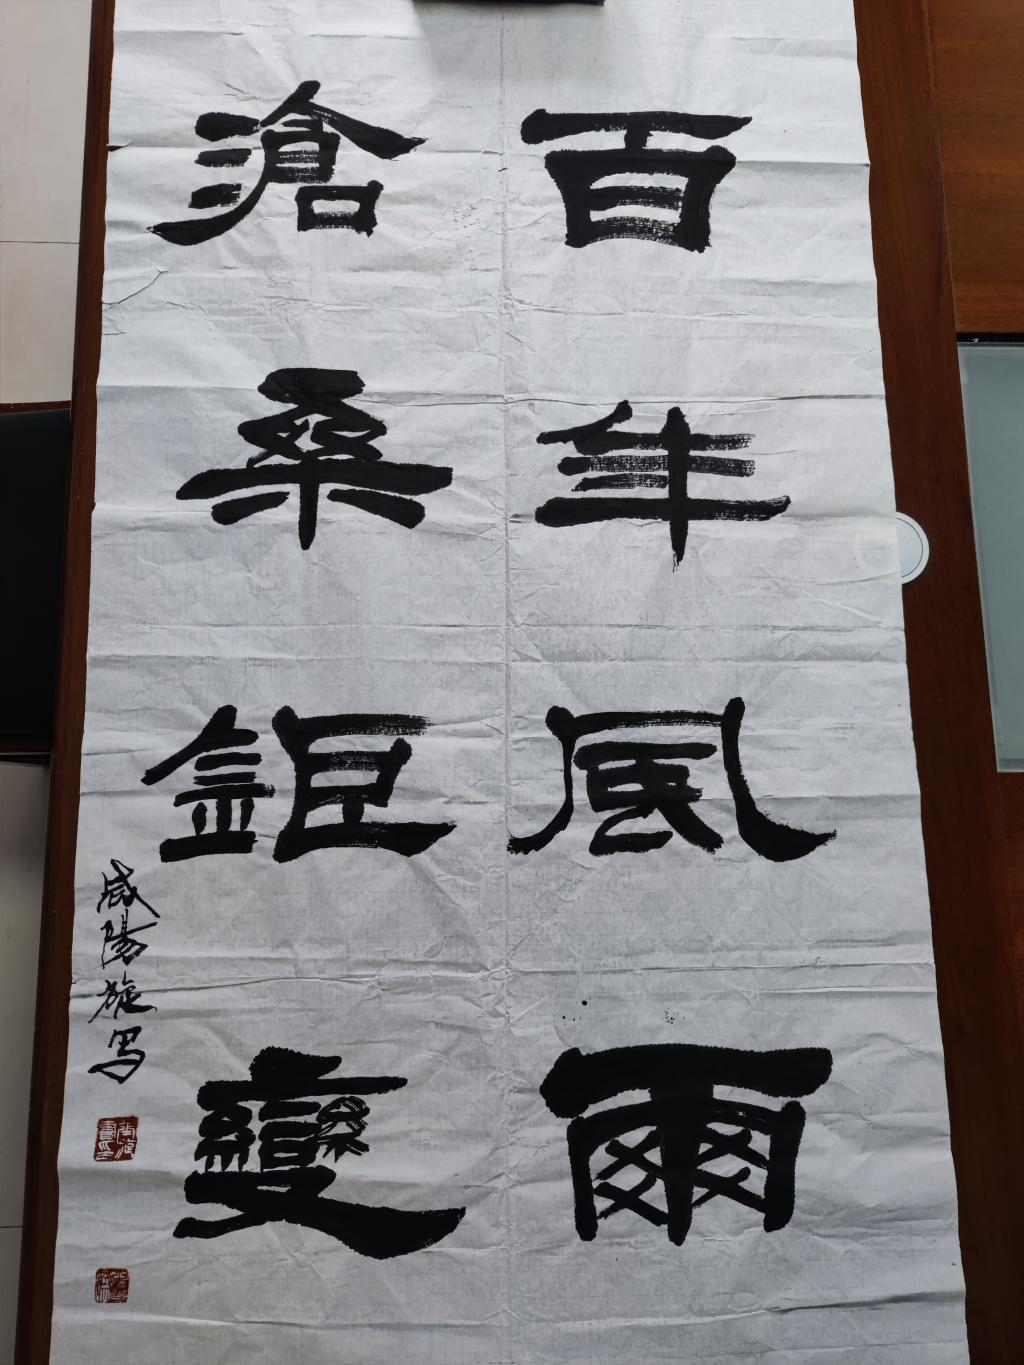 百年風雨
滄桑鉅變
咸陽旋写